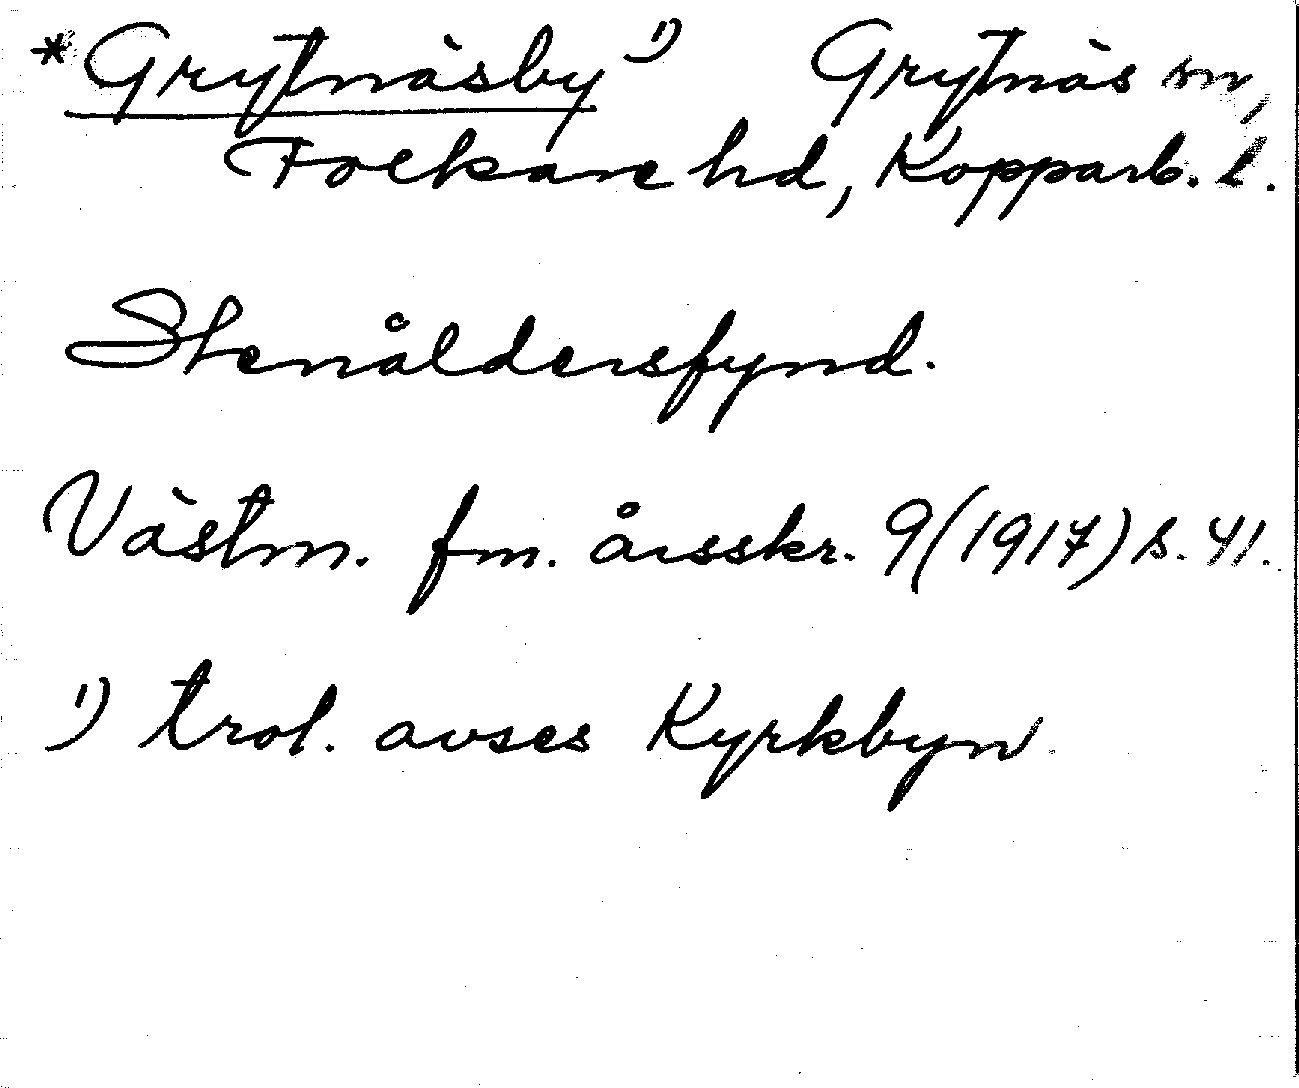 *Grytnäsby ¹) Grytnäs sn,
Folkare hd, Kopparb. l.
Stenåldersfynd.
Västm. fm. årsskr. 9 (1917) s. 41.
¹) trol. avses Kyrkbyn